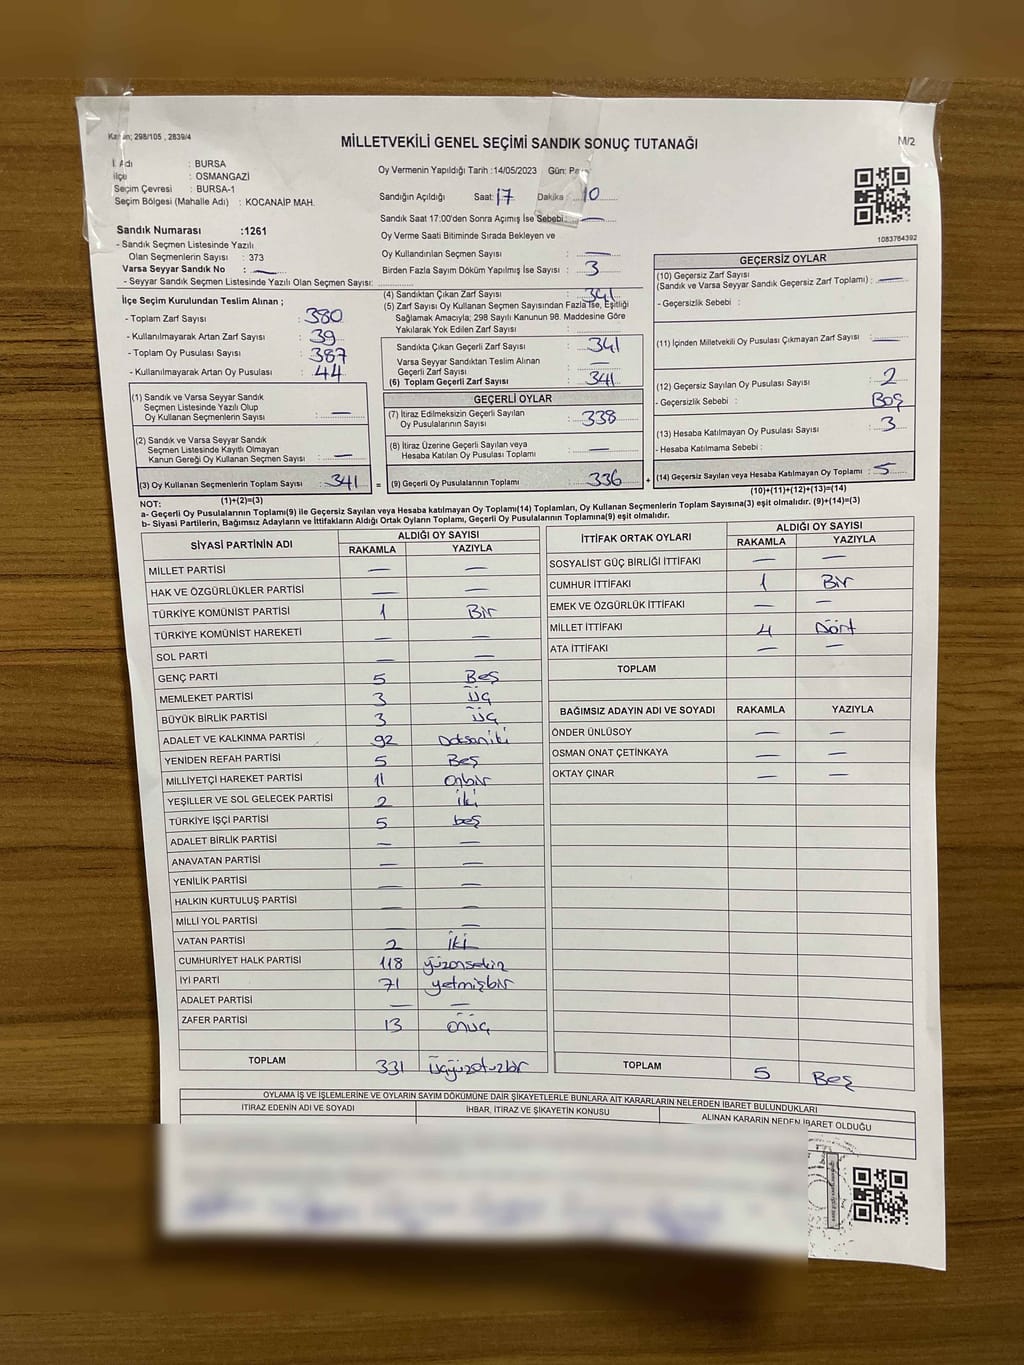 Kanun; 298/105 , 2839/4
MİLLETVEKİLİ GENEL SEÇİMİ SANDIK SONUÇ TUTANAĞI
M/2
İl Adı : BURSA
İlçe : OSMANGAZİ
Seçim Çevresi : BURSA-1
Seçim Bölgesi (Mahalle Adı) : KOCANAİP MAH.
Oy Vermenin Yapıldığı Tarih :14/05/2023 Gün:
Sandığın Açıldığı Saat: 17 Dakika : 10
Sandık Saat 17:00'den Sonra Açımış İse Sebebi: —
Oy Verme Saati Bitiminde Sırada Bekleyen ve
Oy Kullandırılan Seçmen Sayısı : —
Birden Fazla Sayım Döküm Yapılmış İse Sayısı : 3
1083764392
Sandık Numarası :1261
- Sandık Seçmen Listesinde Yazılı
Olan Seçmenlerin Sayısı : 373
Varsa Seyyar Sandık No : —
- Seyyar Sandık Seçmen Listesinde Yazılı Olan Seçmen Sayısı:
İlçe Seçim Kurulundan Teslim Alınan ;
- Toplam Zarf Sayısı : 380
- Kullanılmayarak Artan Zarf Sayısı : 39
- Toplam Oy Pusulası Sayısı : 387
- Kullanılmayarak Artan Oy Pusulası : 44
(1) Sandık ve Varsa Seyyar Sandık
Seçmen Listesinde Yazılı Olup
Oy Kullanan Seçmenlerin Sayısı : —
(2) Sandık ve Varsa Seyyar Sandık
Seçmen Listesinde Kayıtlı Olmayan
Kanun Gereği Oy Kullanan Seçmen Sayısı : —
(3) Oy Kullanan Seçmenlerin Toplam Sayısı : 341 =
(1)+(2)=(3)
(4) Sandıktan Çıkan Zarf Sayısı : 341
(5) Zarf Sayısı Oy Kullanan Seçmen Sayısından Fazla İse, Eşitliği
Sağlamak Amacıyla; 298 Sayılı Kanunun 98. Maddesine Göre
Yakılarak Yok Edilen Zarf Sayısı :
Sandıkta Çıkan Geçerli Zarf Sayısı : 341
Varsa Seyyar Sandıktan Teslim Alınan
Geçerli Zarf Sayısı :
(6) Toplam Geçerli Zarf Sayısı : 341
GEÇERLİ OYLAR
(7) İtiraz Edilmeksizin Geçerli Sayılan
Oy Pusulalarının Sayısı : 338
(8) İtiraz Üzerine Geçerli Sayılan veya
Hesaba Katılan Oy Pusulası Toplamı : —
(9) Geçerli Oy Pusulalarının Toplamı : 336 +
GEÇERSİZ OYLAR
(10) Geçersiz Zarf Sayısı
(Sandık ve Varsa Seyyar Sandık Geçersiz Zarf Toplamı) : —
- Geçersizlik Sebebi :
(11) İçinden Milletvekili Oy Pusulası Çıkmayan Zarf Sayısı : —
(12) Geçersiz Sayılan Oy Pusulası Sayısı : 2
- Geçersizlik Sebebi : Boş
(13) Hesaba Katılmayan Oy Pusulası Sayısı : 3
- Hesaba Katılmama Sebebi :
(14) Geçersiz Sayılan veya Hesaba Katılmayan Oy Toplamı : 5
(10)+(11)+(12)+(13)=(14)
NOT:
a- Geçerli Oy Pusulalarının Toplamı(9) ile Geçersiz Sayılan veya Hesaba katılmayan Oy Toplamı(14) Toplamları, Oy Kullanan Seçmenlerin Toplam Sayısına(3) eşit olmalıdır. (9)+(14)=(3)
b- Siyasi Partilerin, Bağımsız Adayların ve İttifakların Aldığı Ortak Oyların Toplamı, Geçerli Oy Pusulalarının Toplamına(9) eşit olmalıdır.
SİYASİ PARTİNİN ADI ALDIĞI OY SAYISI
RAKAMLA YAZIYLA
MİLLET PARTİSİ — —
HAK VE ÖZGÜRLÜKLER PARTİSİ — —
TÜRKİYE KOMÜNİST PARTİSİ 1 Bir
TÜRKİYE KOMÜNİST HAREKETİ — —
SOL PARTİ — —
GENÇ PARTİ 5 Beş
MEMLEKET PARTİSİ 3 üç
BÜYÜK BİRLİK PARTİSİ 3 üç
ADALET VE KALKINMA PARTİSİ 92 Doksaniki
YENİDEN REFAH PARTİSİ 5 Beş
MİLLİYETÇİ HAREKET PARTİSİ 11 onbir
YEŞİLLER VE SOL GELECEK PARTİSİ 2 iki
TÜRKİYE İŞÇİ PARTİSİ 5 beş
ADALET BİRLİK PARTİSİ — —
ANAVATAN PARTİSİ — —
YENİLİK PARTİSİ — —
HALKIN KURTULUŞ PARTİSİ — —
MİLLİ YOL PARTİSİ — —
VATAN PARTİSİ 2 iki
CUMHURİYET HALK PARTİSİ 118 yüzonsekiz
İYİ PARTİ 71 yetmişbir
ADALET PARTİSİ — —
ZAFER PARTİSİ 13 onüç
TOPLAM 331 üçyüzotuzbir
İTTİFAK ORTAK OYLARI ALDIĞI OY SAYISI
RAKAMLA YAZIYLA
SOSYALİST GÜÇ BİRLİĞİ İTTİFAKI — —
CUMHUR İTTİFAKI 1 Bir
EMEK VE ÖZGÜRLÜK İTTİFAKI — —
MİLLET İTTİFAKI 4 Dört
ATA İTTİFAKI — —
TOPLAM
BAĞIMSIZ ADAYIN ADI VE SOYADI RAKAMLA YAZIYLA
ÖNDER ÜNLÜSOY — —
OSMAN ONAT ÇETİNKAYA — —
OKTAY ÇINAR — —
TOPLAM 5 Beş
OYLAMA İŞ VE İŞLEMLERİNE VE OYLARIN SAYIM DÖKÜMÜNE DAİR ŞİKAYETLERLE BUNLARA AİT KARARLARIN NELERDEN İBARET BULUNDUKLARI
İTİRAZ EDENİN ADI VE SOYADI İHBAR, İTİRAZ VE ŞİKAYETİN KONUSU ALINAN KARARIN NEDEN İBARET OLDUĞU